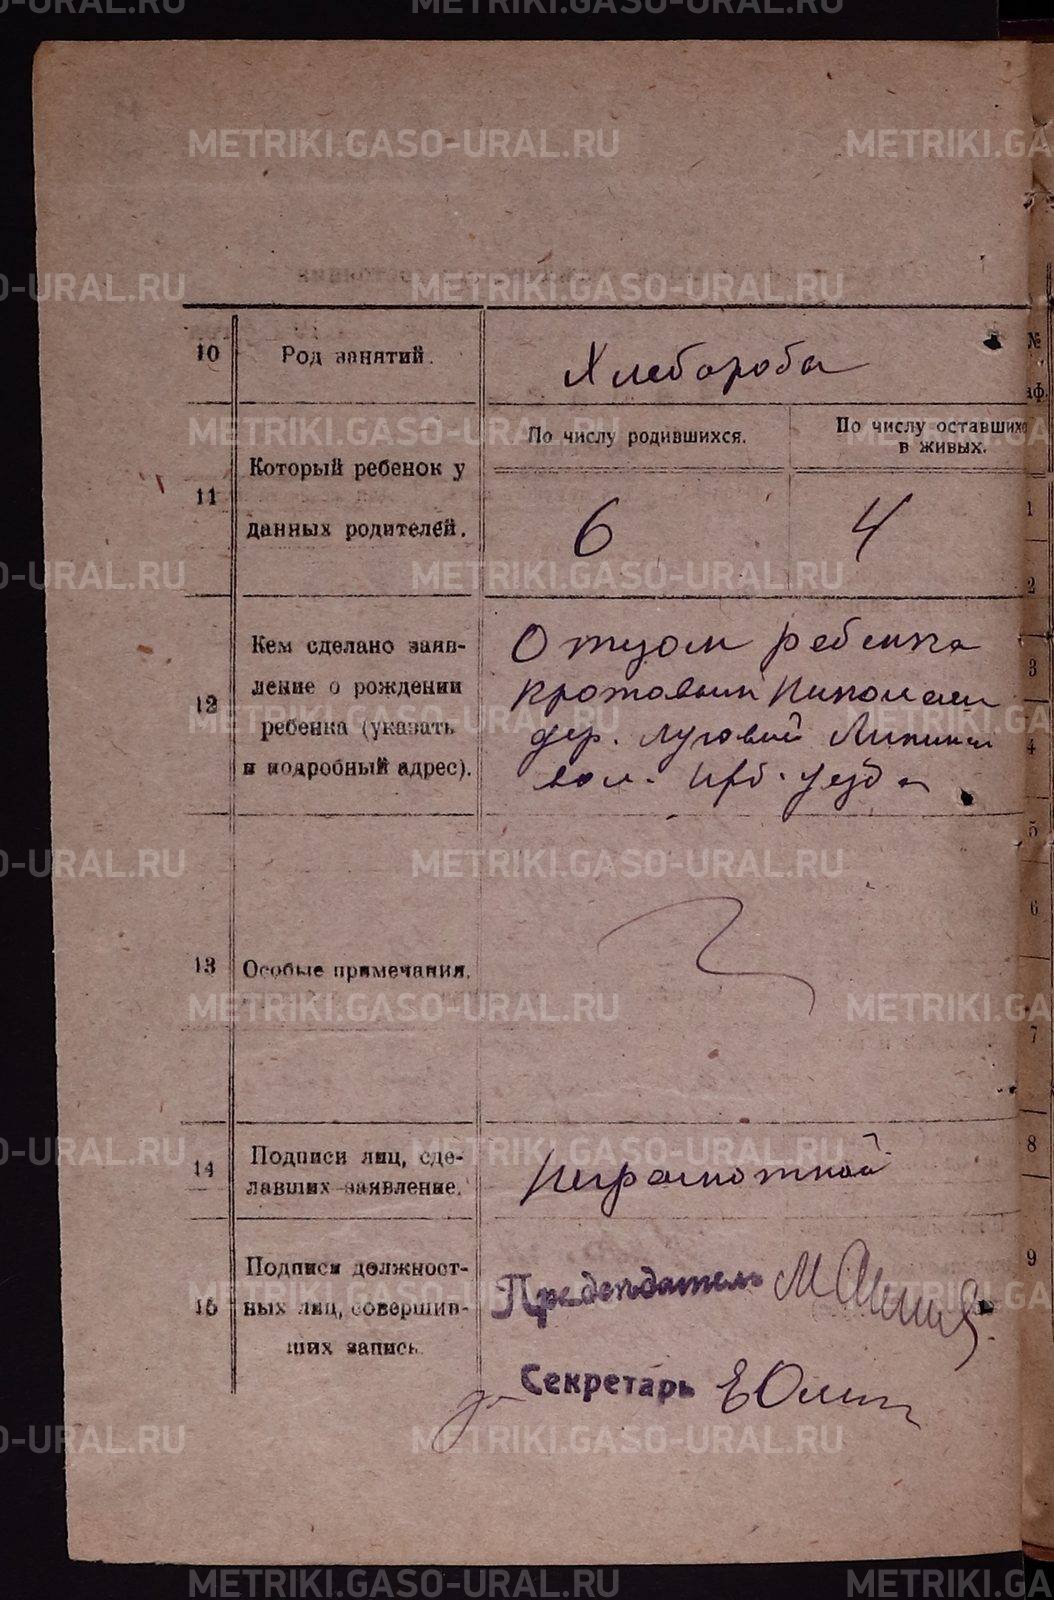 METRIKI.GASO-URAL.RU
10 Род занятий. Хлебороба
11 Который ребенок у данных родителей.
По числу родившихся. По числу оставших
в живых.
6 4
12 Кем сделано заяв-
ление о рождении
ребенка (указать
и подробный адрес).
Отцом ребенка
Кротовым Николаем
дер. Луговой
вол. Ирб. уезда
13 Особые примечания.
14 Подписи лиц, сде-
лавших заявление.
Неграмотной
15 Подписи должност-
ных лиц, совершив-
ших запись.
Председатель
Секретарь
№
аф.
1
2
3
4
5
6
7
8
9